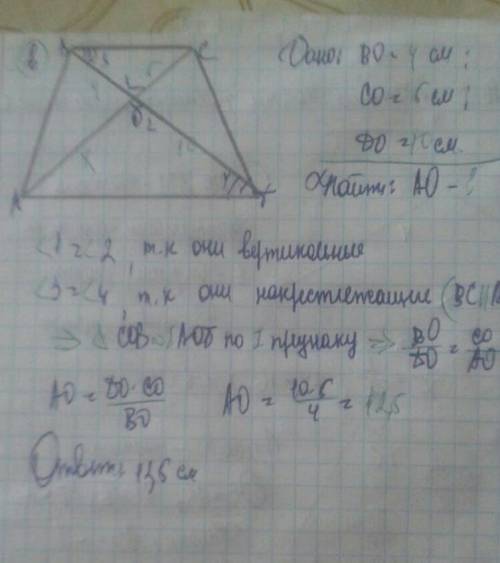 Дано: BO = 4 см;
CO = 5 см;
DO = 10 см.
Найти: AO - ?
B C
3
5
1
4
O 2
10
x
4
A
<1 = <2, т.к они вертикальные
<3 = <4, т.к они накрестлежащие (BC||
=> COB AOD по I признаку => BO/DO = CO/AO
AO = DO·CO/BO AO = 10·5/4 = 12,5
Ответ: см